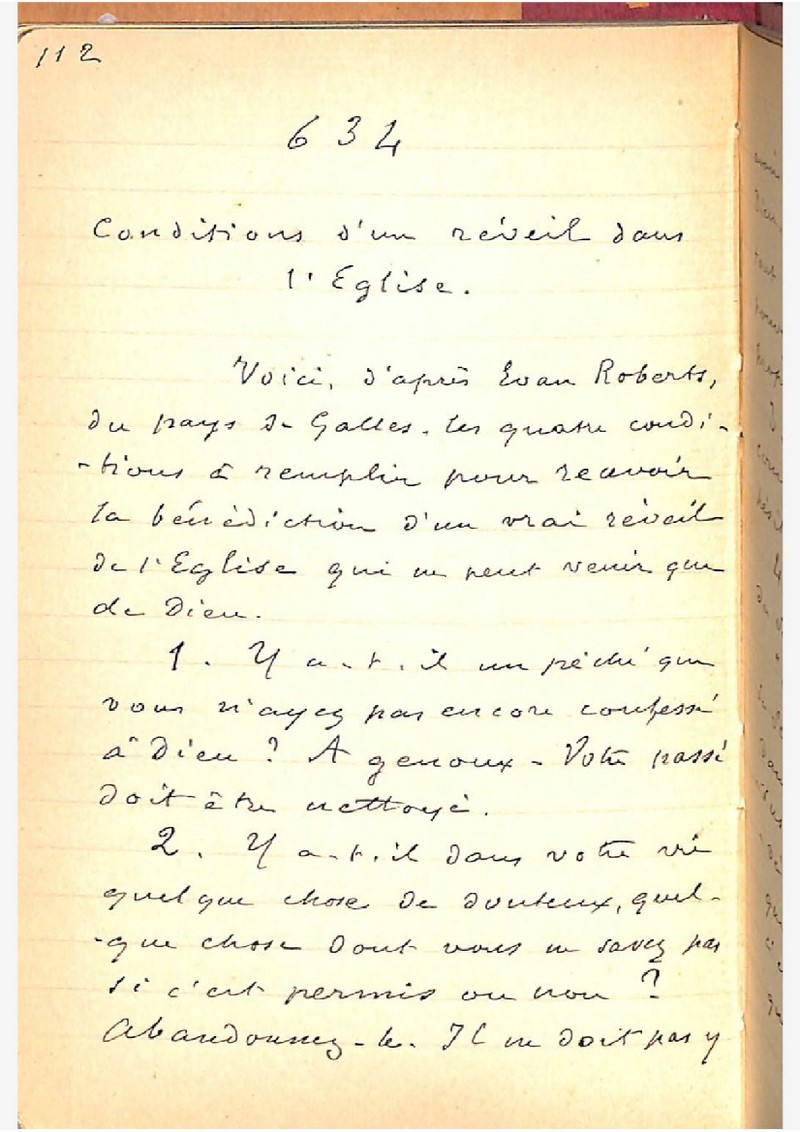 112
634
Conditions d'un réveil dans
l'Eglise.
Voici, d'après Evan Roberts,
du pays de Galles, les quatre condi-
-tions à remplir pour recevoir
la bénédiction d'un vrai réveil
de l'Eglise qui ne peut venir que
de Dieu.
1. Y a-t-il un péché que
vous n'ayez pas encore confessé
à Dieu ? A genoux - Votre passé
doit être nettoyé.
2. Y a-t-il dans votre vie
quelque chose de douteux, quel-
-que chose dont vous ne savez pas
si c'est permis ou non ?
Abandonnez-le. Il ne doit pas y